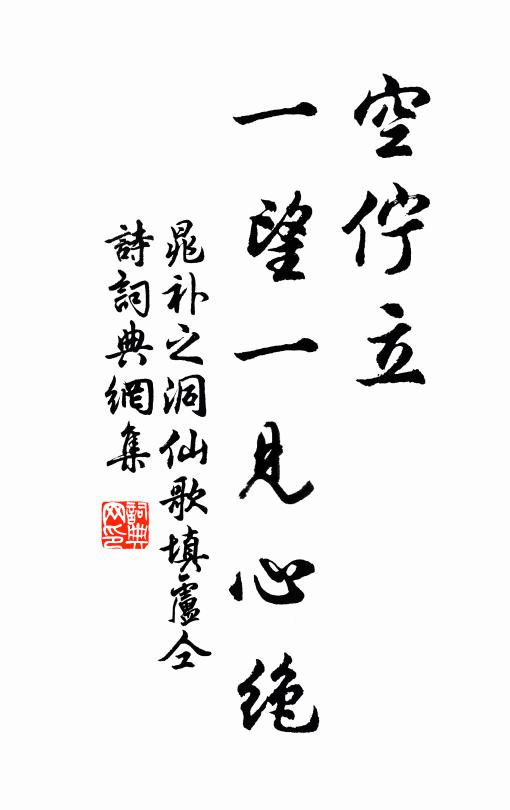 空佇立
一望一見心絶
晁补之洞仙歌填盧仝
詩詞典網集
詞典網印